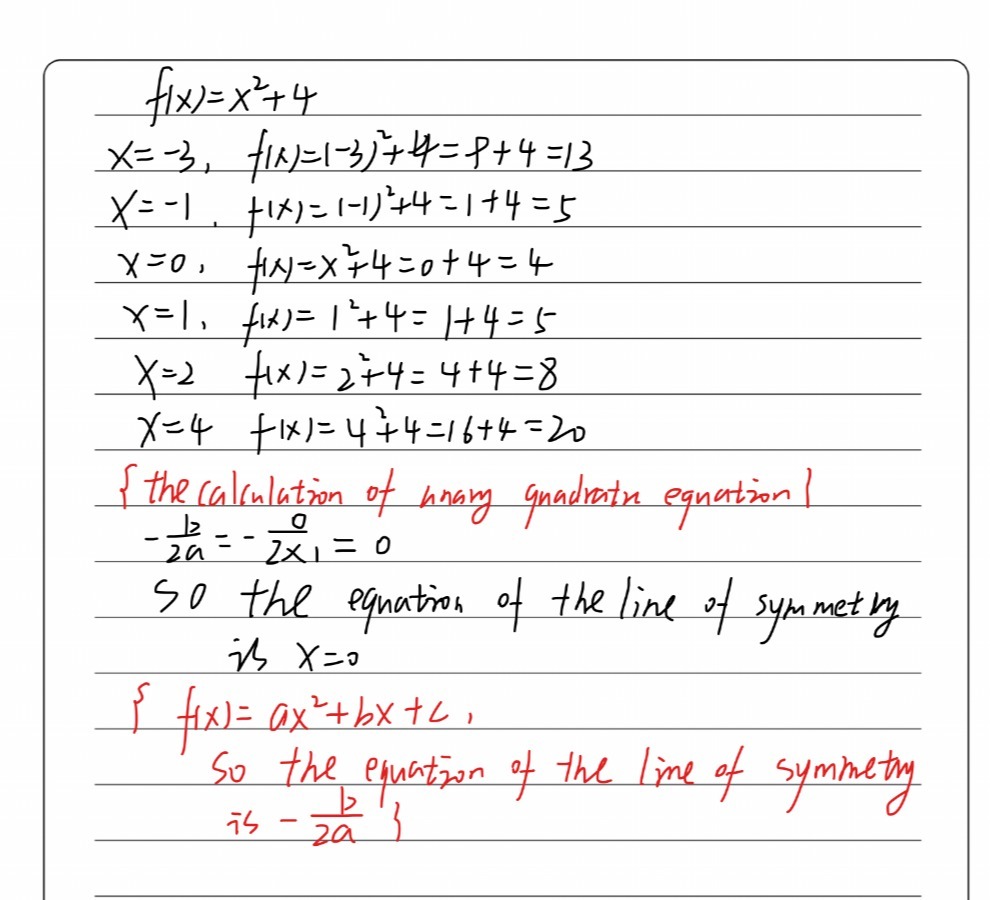 f(x)=x²+4
x=-3, f(x)=(-3)²+4=9+4=13
x=-1, f(x)=(-1)²+4=1+4=5
x=0, f(x)=x²+4=0+4=4
x=1, f(x)=1²+4=1+4=5
x=2 f(x)=2²+4=4+4=8
x=4 f(x)=4²+4=16+4=20
{the calculation of unary quadratic equation}
-b/2a=-0/2×1=0
so the equation of the line of symmetry
is x=0
{ f(x)=ax²+bx+c,
so the equation of the line of symmetry
is -b/2a }